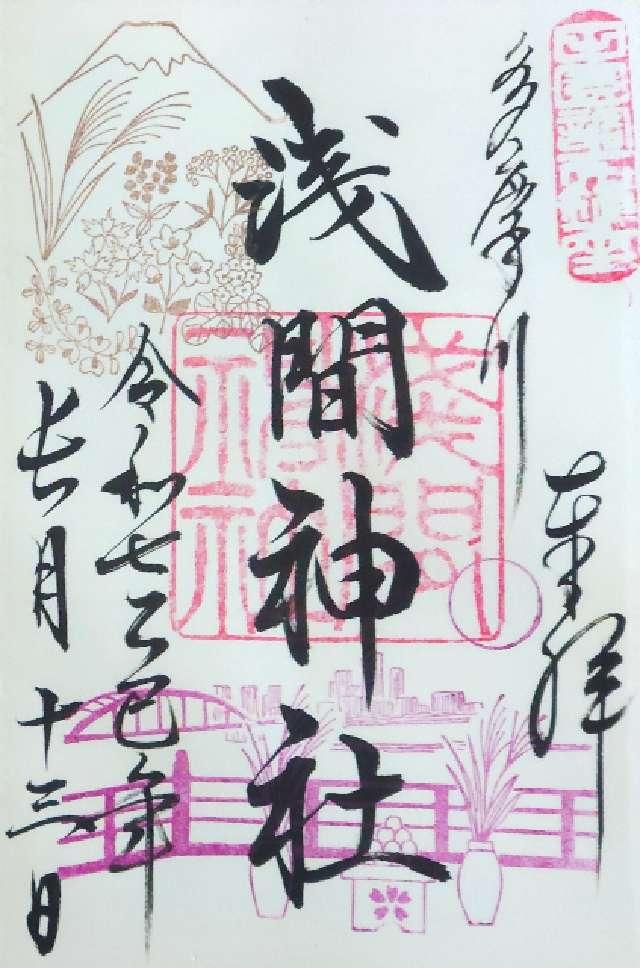 奉拝
多摩川
浅間神社
令和七乙巳年
長月十三日
浅間神社